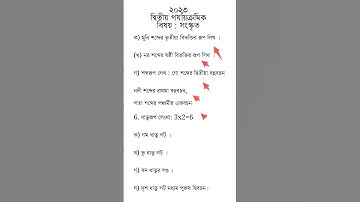 ২০২৩
দ্বিতীয় পর্যায়ক্রমিক
বিষয় : সংস্কৃত
ক) মুনি শব্দের তৃতীয়া বিভক্তির রূপ লিখ ।
(খ) নর শব্দের ষষ্ঠী বিভক্তির রূপ লিখ
গ) শব্দরূপ লেখ : গো শব্দের দ্বিতীয়া বহুবচন
নদী শব্দের প্রথমা বহুবচন,
লতা শব্দের পঞ্চমীর একবচন
6. ধাতুরূপ লেখো: 3x2=6
ক) গম ধাতু লট্ ।
খ) ভূ ধাতু লট্ ।
গ) বদ ধাতুর লঙ ।
ঘ) দৃশ ধাতু লট্ মধ্যম পুরুষ দ্বিবচন।